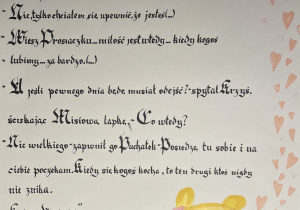 - Nic, tylko chciałem się upewnić, że jesteś(...)
- Wiesz Prosiaczku... miłość jest wtedy... kiedy kogoś
- lubimy... za bardzo.(...)
- A jeśli pewnego dnia będę musiał odejść? - spytał Krzyś,
ściskając Misiową łapkę. - Co wtedy?
- Nic wielkiego - zapewnił go Puchatek - Posiedzę tu sobie i na
ciebie poczekam. Kiedy się kogoś kocha, to ten drugi ktoś nigdy
nie znika.